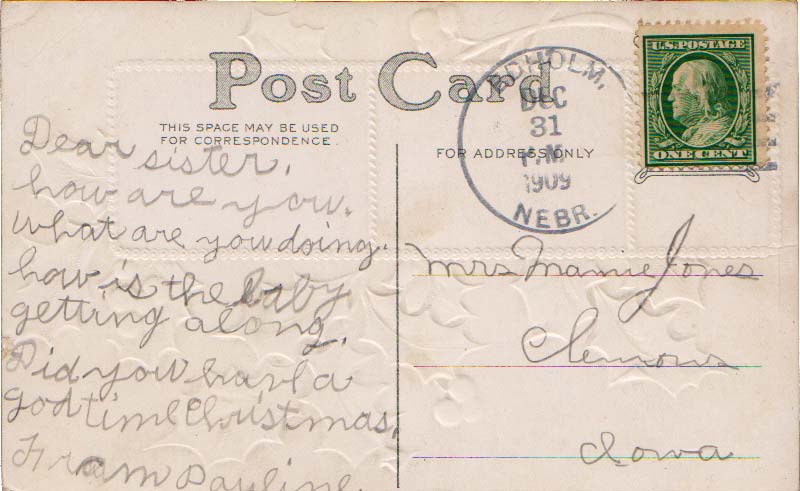 Post Card
THIS SPACE MAY BE USED
FOR CORRESPONDENCE
FOR ADDRESS ONLY
DHOLM,
DEC
31
P.M.
1909
NEBR.
U.S.POSTAGE
ONE CENT
Dear sister,
how are you.
what are you doing.
how is the baby
getting along.
Did you have a
god time Christmas.
From Pauline.
Mrs Mamie Jones
Clemons
Iowa